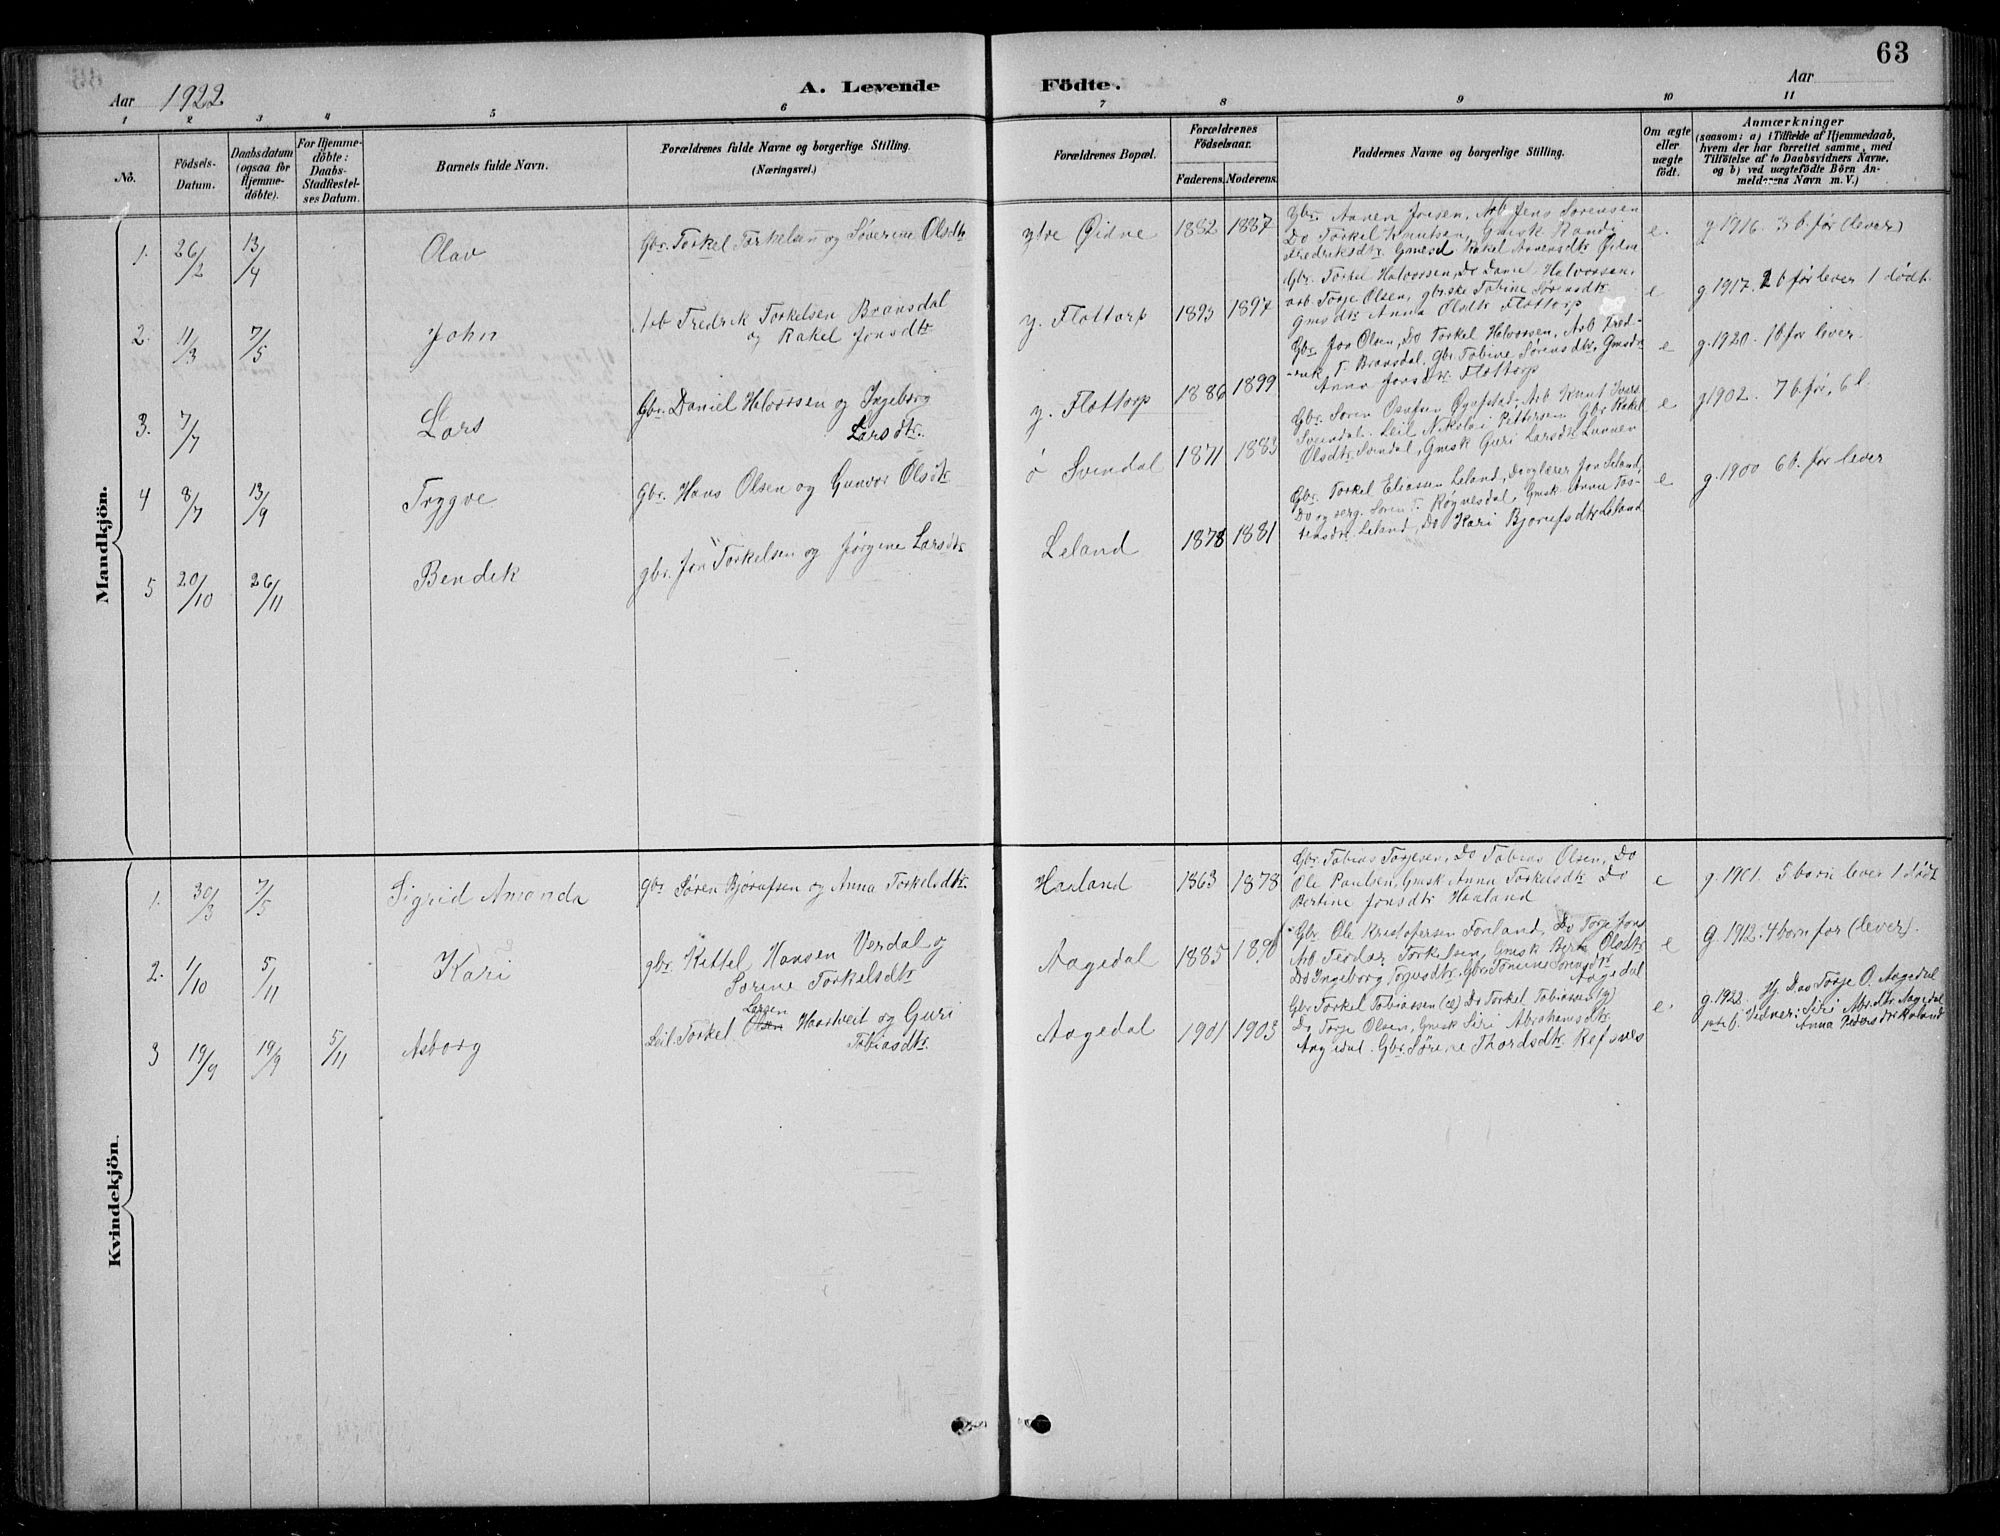 63
Aar 1922
A. Levende Födte.
Aar
1 2 3 4 5 6 7 8 9 10 11
No.
Födsels-Datum.
Daabsdatum (ogsaa for Hjemme-döbte).
For Hjemme-döbte: Daabs-Stadfæstel-ses Datum.
Barnets fulde Navn.
Forældrenes fulde Navne og borgerlige Stilling. (Næringsvei.)
Forældrenes Bopæl.
Forældrenes Födselsaar.
Faderens. Moderens.
Faddernes Navne og borgerlige Stilling.
Om ægte eller uægte födt.
Anmærkninger
(saasom: a) i Tilfælde af Hjemmedaab, hvem der har forrettet samme, med Tilföielse af to Daabsvidners Navne, og b) ved uægtefödte Börn An-melderens Navn m. V.)
Mandkjön.
1. 26/2 13/4 Olav
Gbr. Torkel Torkelsen og Severine Olsdtr
ytre Øidne 1882 1887
Gbr. Aanen Jonsen, Arb Jens Sørensen
Do Torkel Knutsen, Gmsk Randi
Fredriksdtr. Gmsd Rakel Aanensdtr Øidne
e. g 1916. 3 b. før (lever)
2. 11/3 7/5 John
Arb Fredrik Torkelsen Bransdal
og Rakel Jonsdtr
y. Flottorp 1893 1897
Gbr. Torkel Halvorsen, Do Daniel Halvorsen,
arb. Torje Olsen, gbrske Tobine Sørensdtr
Gmsdtr Anna Olsdtr Flottorp
e g 1917. 2 b før lever 1 dødt.
3. 7/7 Lars
Gbr. Daniel Halvorsen og Ingeborg
Larsdtr.
y. Flottorp 1886 1899
Gbr Jon Olsen, Do Torkel Halvorsen, Arb Fred-
rik T. Bransdal, gbr Tobine Sørensdtr, Gmsdtr
Anna Jonsdtr Flottorp
e g. 1920. 1 b før lever.
4 8/7 13/9 Tryggve
Gbr. Hans Olsen og Gunvor Olsdtr
ø Svendal 1871 1883
Gbr. Søren Øyufstad, Arb Knut
Svendal. Leil Nikolai Pettersen Gbr Rakel
Olsdtr Svindal, Gmsk Guri Larsdtr
e g 1902. 7 b. før, 6 l.
5 20/10 26/11 Bendik
gbr. Jon Torkelsen og Jørgine Larsdtr
Leland 1878 1881
Gbr. Torkel Eliassen Leland, Do og lærer Jon Leland,
Do og serg. Søren T. Røgnesdal, Gmsk Anne Tos-
tensdtr Leland, Do Kari Bjorufsdtr Leland
e g. 1900 6 b. før lever
Kvindekjön.
1. 30/3 7/5 Sigrid Amanda
gbr Søren Bjørufsen og Anna Torkelsdtr.
Haaland 1863 1878
Gbr. Tobias Torjesen, Do Tobias Olsen, Do
Ole Paulsen, Gmsk Anna Torkelsdtr Do
Bertine Jonsdtr Haaland
e g. 1901. 5 barn lever 1 dødt
2. 1/10 5/11 Kari
gbr. Kittel Hansen Verdal og
Sorine Torkelsdtr
Aagedal 1885 1890
Gbr Ole Kristofersen Forland, Do Torje Jons
Arb. Teodor Torkelsen, Gmsk Berte Olsdtr
Do Ingeborg Torjusdtr, Gbr Tomine Sørensdtr
Aagedal
e g. 1912. 4 born for (lever).
3 19/9 19/9 5/11 Asborg
Leil. Torkel Larsen Haartveit og Guri
Tobiasdtr.
Aagedal 1901 1903
Gbr Torkel Tobiassen (æ) Do Torkel Tobiassen (y)
Do Torje Olsen, Gmsk Siri Abrahamsdtr
Aagedal. Gbr Sørene Thordsdtr Refsnes
e. g. 1922. Hj. Daab Torje O. Aagedal
1ste b. Vidner: Siri Abr.dtr Aagedal
Anna Pedersdtr